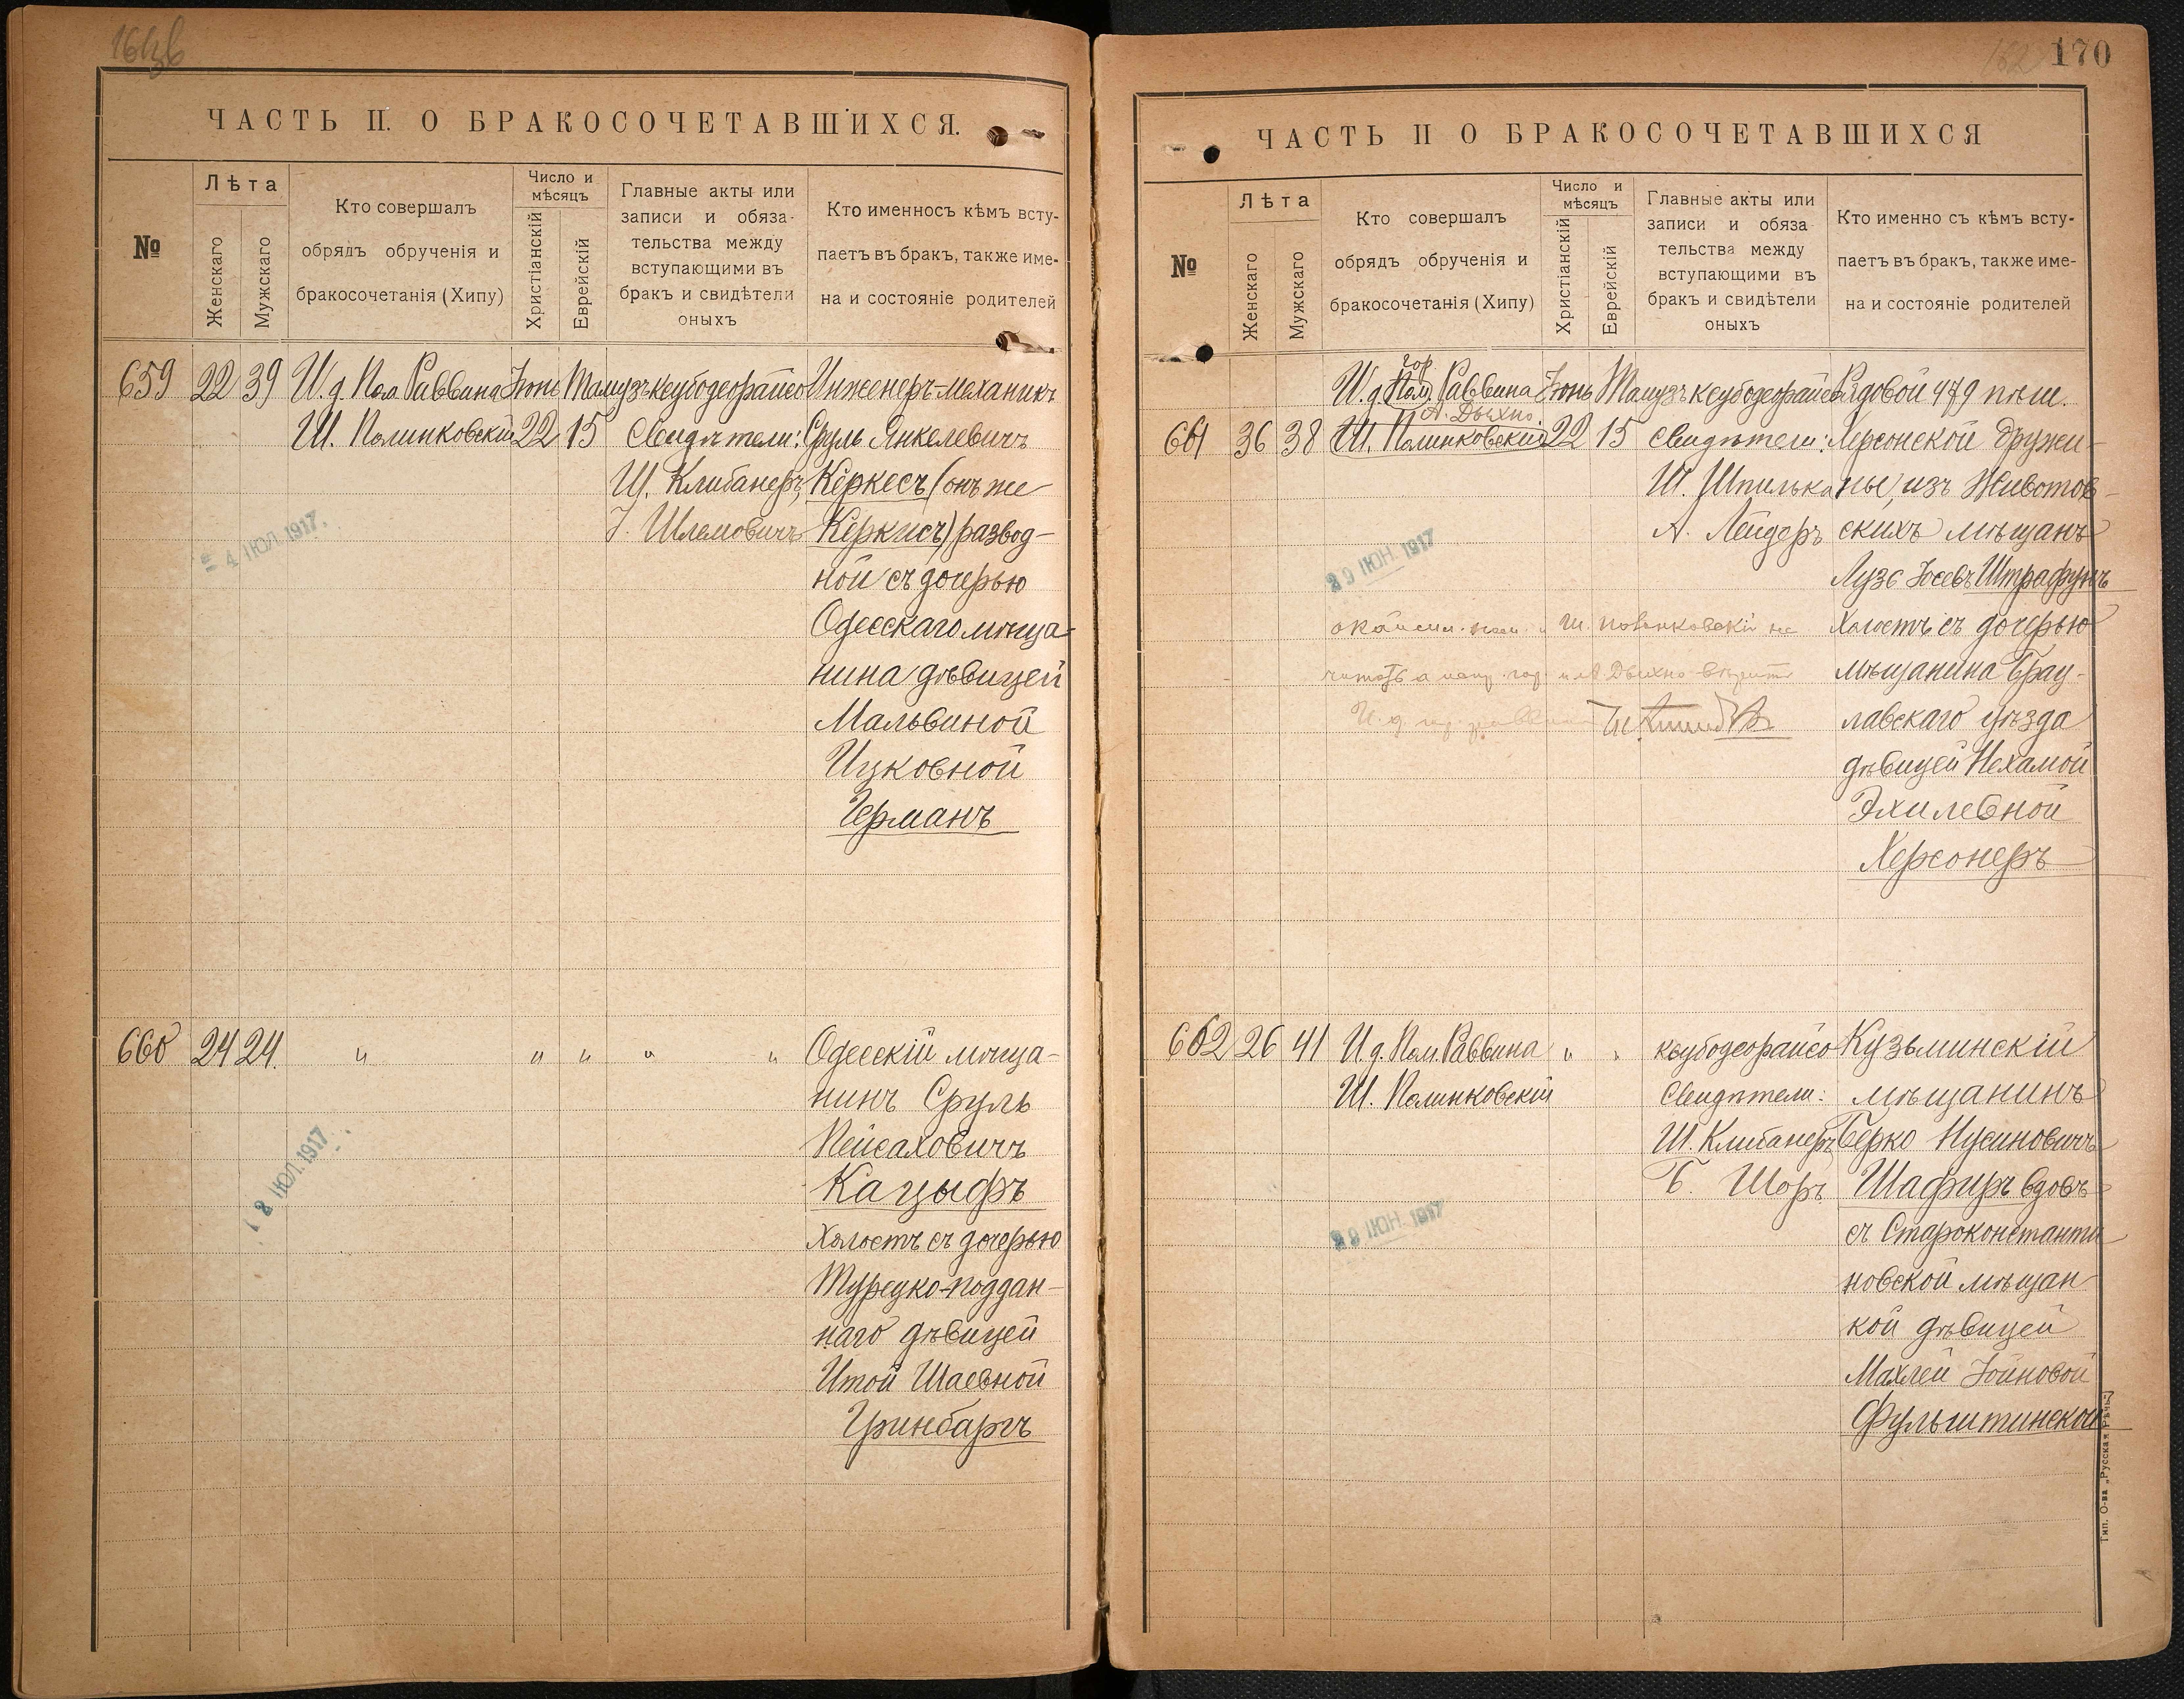 ЧАСТЬ II. О БРАКОСОЧЕТАВШИХСЯ.
№
Лѣта
Женскаго
Мужскаго
Кто совершалъ
обрядъ обрученія и
бракосочетанія (Хипу)
Число и
мѣсяцъ
Христіанскій
Еврейскій
Главные акты или
записи и обяза-
тельства между
вступающими въ
бракъ и свидѣтели
оныхъ
Кто именносъ кѣмъ всту-
паетъ въ бракъ, также име-
на и состояніе родителей
659 22 39 И.д. Пом. Раввина Іюнь Тамузъ ксубодеорайсо Инженеръ-механикъ
Ш. Полинковскій 22 15 Свидѣтели: Сруль Янкелевичъ
Ш. Клибанеръ, Керкесъ (онъ же
І. Шлемовичъ Керкисъ) развод-
ной съ дочерью
4 ІЮЛ. 1917.
Одесскаго мѣща-
нина дѣвицей
Мальвиной
Ицковной
Германъ
660 24 24. " " " " " Одесскій мѣща-
нинъ Сруль
Пейсаховичъ
Кацыфъ
Холостъ съ дочерью
Турецко-поддан-
наго дѣвицей
Итой Шаевной
Гринбаргъ
8 ІЮЛ. 1917
170
ЧАСТЬ II О БРАКОСОЧЕТАВШИХСЯ
№
Лѣта
Женскаго
Мужскаго
Кто совершалъ
обрядъ обрученія и
бракосочетанія (Хипу)
Число и
мѣсяцъ
Христіанскій
Еврейскій
Главные акты или
записи и обяза-
тельства между
вступающими въ
бракъ и свидѣтели
оныхъ
Кто именно съ кѣмъ всту-
паетъ въ бракъ, также име-
на и состояніе родителей
гор.
И.д. Пом. Раввина Іюнь Тамузъ ксубодеорайсо Рядовой 479 пѣш.
А. Дыхно
661 36 38 Ш. Полинковскій 22 15 Свидѣтели: Херсонской дружи-
Ш. Шпилька ны, изъ Животов-
А. Лейдеръ скихъ мѣщанъ
Лузе Іосевъ Штрафунъ
29 ІЮН. 1917
Холостъ съ дочерью
мѣщанина Брац-
лавскаго уѣзда
дѣвицей Нехамой
Эхилевной
Херсонеръ
662 26 41 И.д. Пом. Раввина " " ксубодеорайсо Кузьминскій
Ш. Полинковскій Свидѣтели: мѣщанинъ
Ш. Клибанеръ Берко Нусиновичъ
Б. Шоръ Шафиръ вдовъ
29 ІЮН. 1917
съ Староконстанти
новской мѣщан
кой дѣвицей
Махлей Іойновой
Фульштинской
Тип. О-ва „Русская Рѣчь"